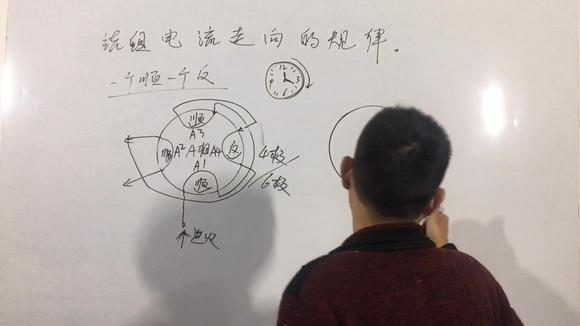 绕组电流走向的规律。
一个顺一个反
12
3
6
9
顺
A3
顺 A2 A相 A4 反
A1
顺
4极
6极
进火